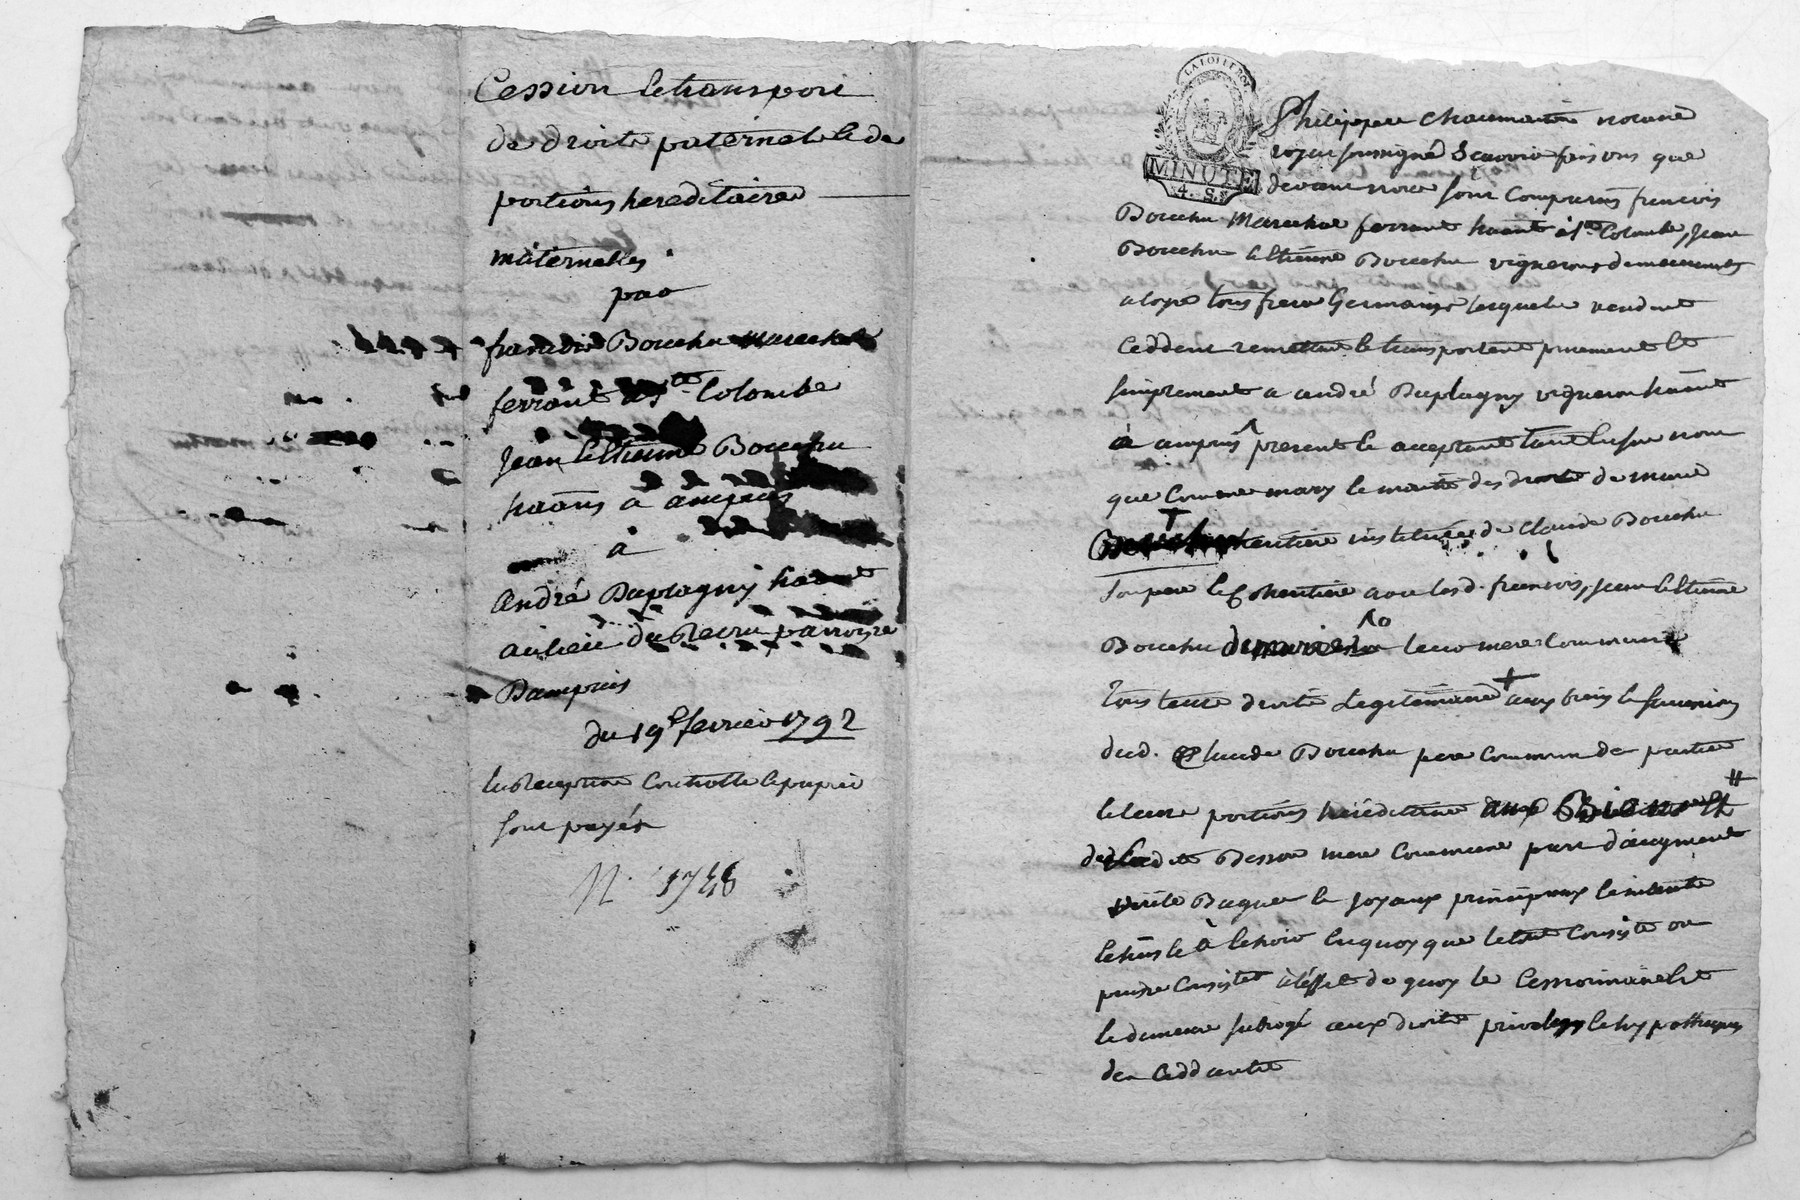 Cession et transport
de droits paternels et de
portions hereditaires
maternelles
par
francois Bouchu marechal
ferrant a Ste Colombe
Jean et Etienne Bouchu
hãns a ampuis
à
André Duplagny hãnt
au lieu du recru parroisse
Dampuis
du 19e fevrier 1792
la reception Controlle et papier
sont payés
N. 1748
LA LOI LE ROI
MINUTE
4. S.
Philippe Chaumartin notaire
royal soussigné Scavoir faisons que
devant nous sont Comparus francois
Bouchu Marechal ferrant hãnt a Ste Colombe, Jean
Bouchu et Etienne Bouchu vignerons demeurants
a loye tous freres Germains lesquels vendent
Ceddent remettent et transportent purement et
simplement a andré Duplagny vigneron hãnt
à ampuis present et acceptant tant en son nom
que Comme mary et maitre des droits de marie
Bouchu heritiere instituée de Claude Bouchu
son pere et Coheritiere avec lesd. francois, Jean et Etienne
Bouchu de marie leur mere Commune
Tous leurs droits Legitimaires aux biens et succession
dud. Claude Bouchu pere Commun de partie
et leurs portions hereditaires aux Biens et
de ladite Besson mere Commune part d'augment
virile Bagues et Joyaux principaux et interets
echus et à echoir en quoy que le tout Consiste ou
puisse Consister à l'effet de quoy le Cessionnaire est
et demeure subrogé aux droits privileges et hypotheques
des Ceddants